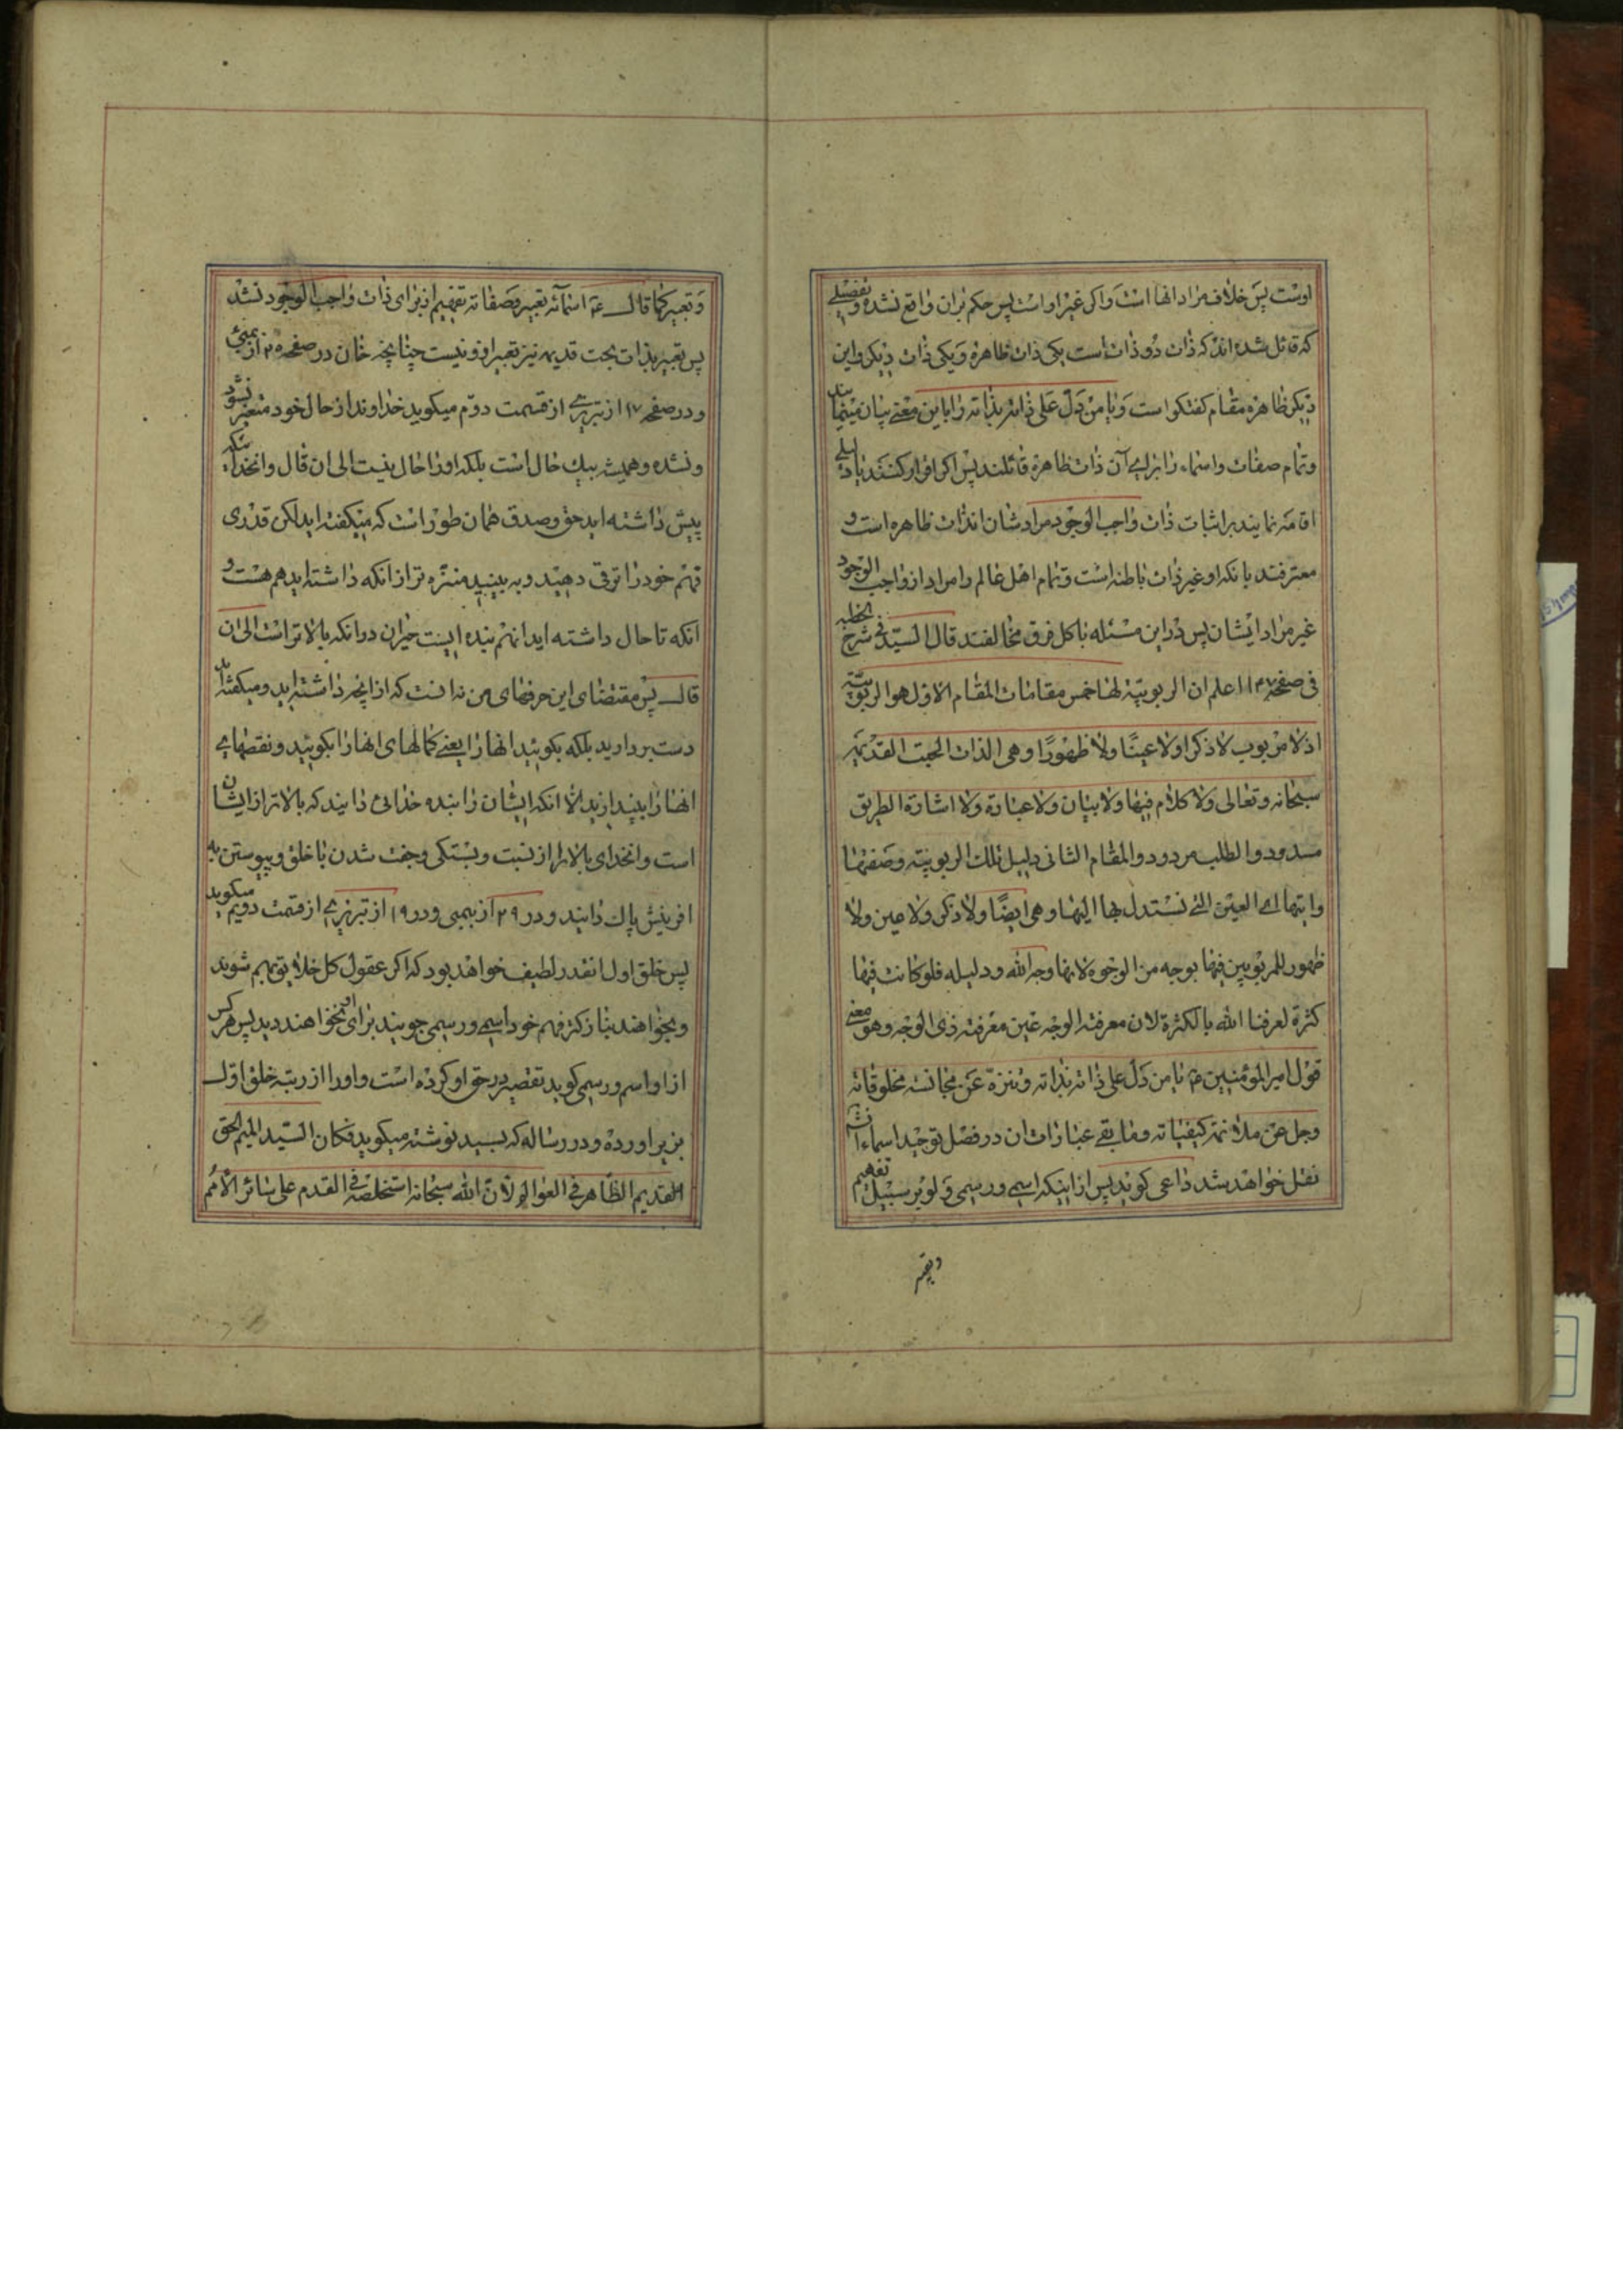 اوست پس خلاف مراد انها است و اکر غیر او است پس حکم بران واقع نشده و تفصیلی
که قائل شده اند که ذات دو ذات است یکی ذات ظاهره و یکی ذات دیکر و این
دیکر ظاهره مقام کفتکو است و یا من دل علی ذاته بذاته را باین معنی بیان مینمایند
و تمام صفات و اسماء را برای آن ذات ظاهره قائلند پس اکر اقرار کنند یا دلیلی
اقامه نمایند بر اثبات ذات واجب الوجود مرادشان انذات ظاهره است و
معترفند بانکه او غیر ذات باطنه است و تمام اهل عالم را مراد از واجب الوجود
غیر مراد ایشان پس در این مسئله با کل فرق مخالفند قال السید فی شرح الخطبه
فی صفحه اعلم ان الربوبیة لها خمس مقامات المقام الاول هو الربوبیة
اذ لا مربوب لا ذکرا ولا عینًا ولا ظهورًا و هی الذات البحت القدیمه
سبحانه و تعالی ولا کلام فیها ولا بیان ولا عبارة ولا اشارة الطریق
مسدود و الطلب مردود و المقام الثانی دلیل تلک الربوبیة و صفتها
و ایتها ای العین التی نستدل بها الیها و هی ایضًا ولا ذکر ولا عین ولا
ظهور للمربوبین فیها بوجه من الوجوه لانها وجه الله و دلیله فلو کانت فیها
کثرة لعرفنا الله بالکثرة لان معرفة الوجه عین معرفة ذی الوجه و هو معنی
قول امیر المؤمنین ع یا من دل علی ذاته بذاته و تنزه عن مجانسة مخلوقاته
و جل عن ملائمة کیفیاته و مابقی عبارات ان در فصل توحید اسماء انشاء
نقل خواهد شد داعی کوید پس از اینکه اسمی و رسمی و لو بر سبیل تفهیم
و تعبیر
و تعبیر کما قال ع اسمائه تعبیر و صفاته تفهیم از برای ذات واجب الوجود نشد
پس تعبیر بذات بحت قدیمه نیز تعبیر از او نیست چنانچه خان در صفحه از بمبئی
و در صفحه ۱۷ از تبریزی از قسمت دوم میکوید خداوند از حال خود متغیر نشود
و نشده و همیشه بیک حال است بلکه او را حال نیست الی ان قال و انخدا
پیش داشته اید حق و صدق همان طور است که میکفته اید لکن قدری
فهم خود را ترقی دهید و به بینید منزه تر از انکه داشته اید هم هست و
انکه تا حال داشته اید انهم بنده ایست حیران در انکه بالاتر است الی ان
قال پس مقتضای این حرفهای من نه انست که از انچه داشته اید و میکفته اید
دست بردارید بلکه بکوئید انها را یعنی کمالهای انها را بکوئید و نقصهای
انها را بیندازید الا انکه ایشان را بنده خدائی دانید که بالاتر از ایشان
است و انخدای بالاتر را از نسبت و بستکی و جفت شدن با خلق و پیوستن به
افرینش پاک دانید و در ۲۹ از بمبی و در ۱۹ از تبریزی از قسمت دویم میکوید
پس خلق اول انقدر لطیف خواهد بود که اکر عقول کل خلایق بهم شوند
و بخواهند بتازکتر فهم خود اسمی و رسمی جویند برای او نخواهند دید پس هر کس
از او اسم و رسمی کوید تقصیر در حق او کرده است و او را از رتبه خلق اول
بزیر اورده و در رساله که بسید نوشته میکوید فکان السید المیم الحق
القدیم الظاهر فی العوالم لان الله سبحانه استخلصه فی القدم علی سائر الامم